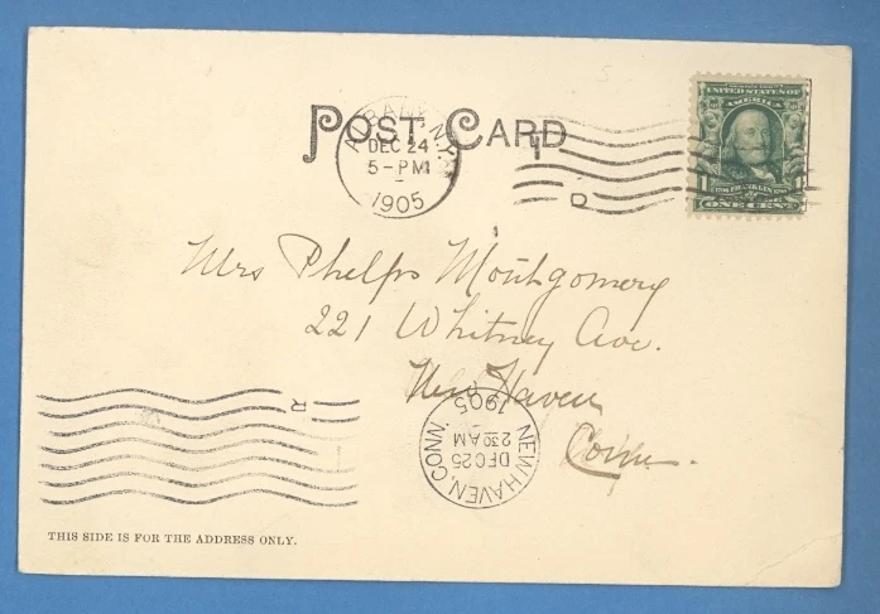 POST CARD
ALBANY, N.Y.
DEC 24
5-PM
1905
D
UNITED STATES OF
AMERICA
1 FRANKLIN
ONE CENT
Mrs Phelps Montgomery
221 Whitney Ave.
New Haven
Conn.
R
NEW HAVEN, CONN.
DEC 25
2 30 AM
1905
THIS SIDE IS FOR THE ADDRESS ONLY.